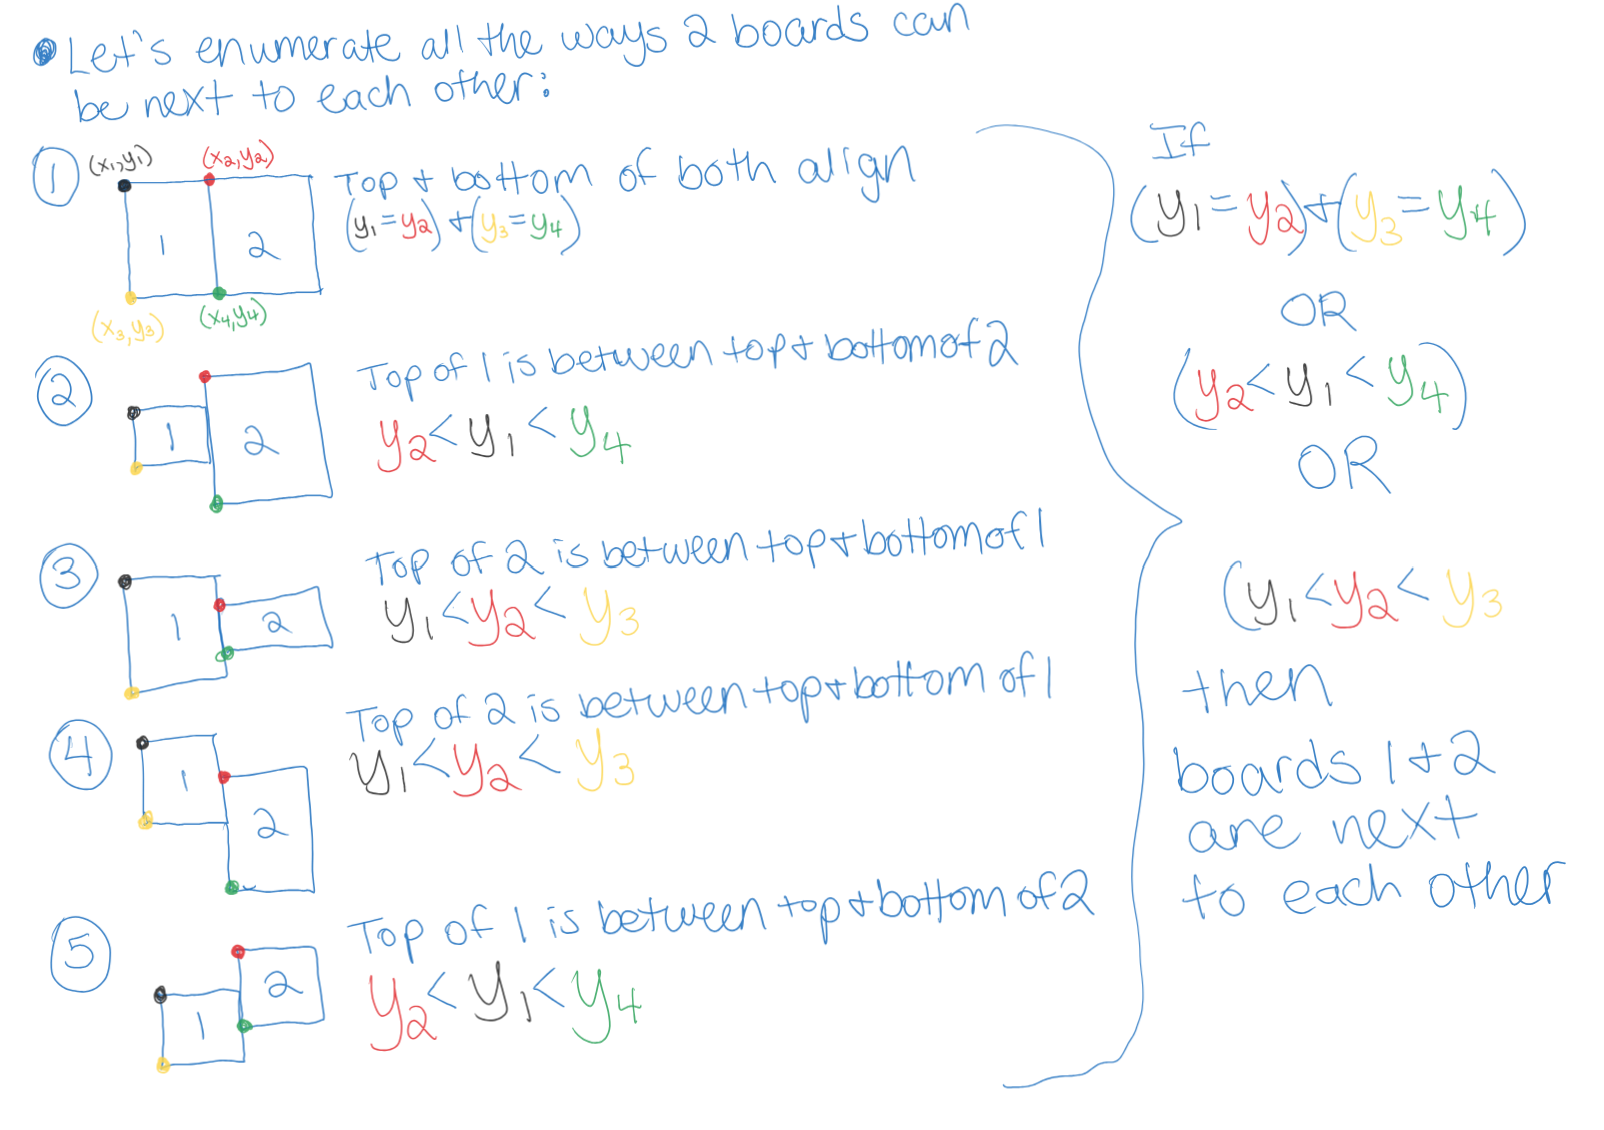 Let's enumerate all the ways 2 boards can
be next to each other:
1
(x1,y1)
(x2,y2)
1
2
(x3,y3)
(x4,y4)
Top + bottom of both align
(y1=y2)+(y3=y4)
2
1
2
Top of 1 is between top + bottom of 2
y2<y1<y4
3
1
2
Top of 2 is between top + bottom of 1
y1<y2<y3
4
1
2
Top of 2 is between top + bottom of 1
y1<y2<y3
5
1
2
Top of 1 is between top + bottom of 2
y2<y1<y4
If
(y1=y2)+(y3=y4)
OR
(y2<y1<y4)
OR
(y1<y2<y3
then
boards 1+2
are next
to each other